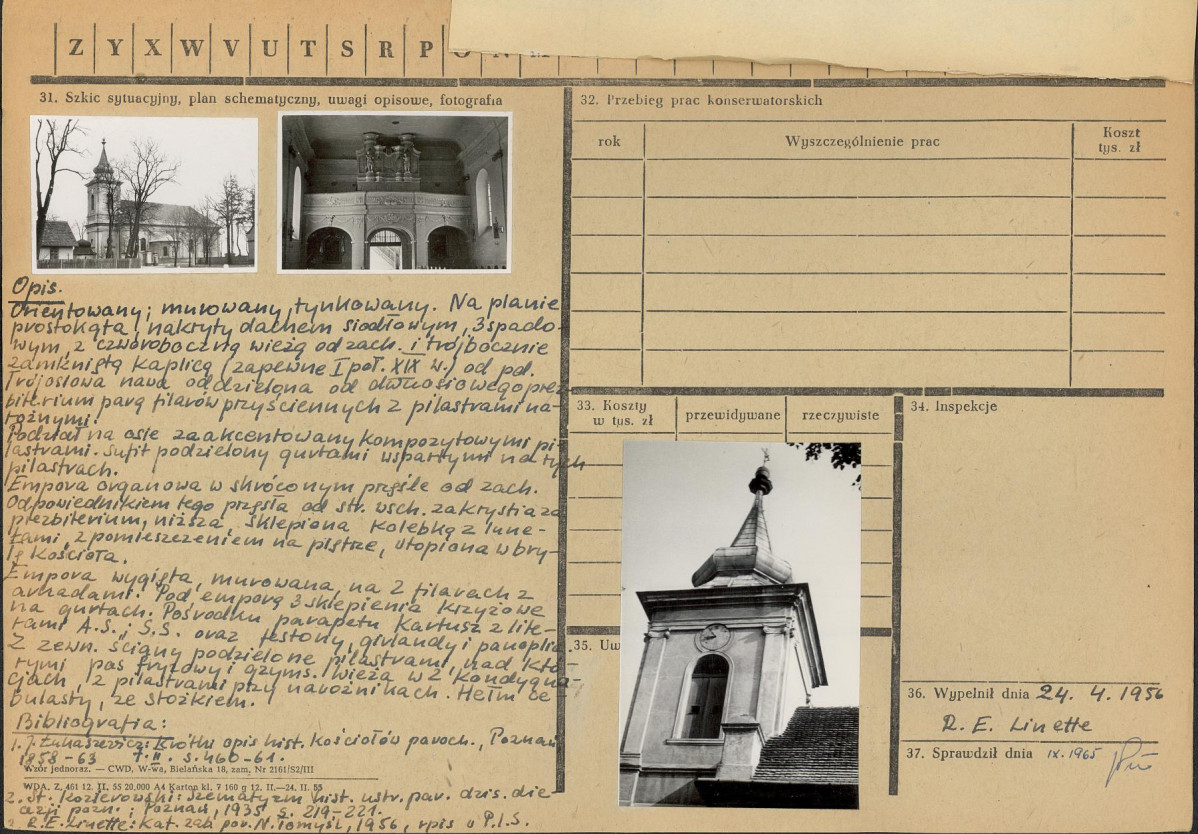 Z Y X W V U T S R P O N
31. Szkic sytuacyjny, plan schematyczny, uwagi opisowe, fotografia
Opis.
Orientowany; murowany, tynkowany. Na planie
prostokąta, nakryty dachem siodłowym, 3spado-
wym, z czworoboczną wieżą od zach. i trójbocznie
zamkniętą kaplicą (zapewne I poł. XIX w.) od pd.
Trójosiowa nawa oddzielona od dwuosiowego prez-
biterium parą filarów przyściennych z pilastrami na-
rożnymi.
Podział na osie zaakcentowany kompozytowymi pi-
lastrami. Sufit podzielony gurtami wspartymi na tych
pilastrach.
Empora organowa w skróconym przęśle od zach.
Odpowiednikiem tego przęsła od str. wsch. zakrystia za
prezbiterium, niższa, sklepiona kolebką z lune-
tami, z pomieszczeniem na piętrze, utopiona w bry-
lę kościoła.
Empora wygięta, murowana, na 2 filarach z
arkadami. Pod emporą 3 sklepienia krzyżowe
na gurtach. Pośrodku parapetu kartusz z lite-
rami A.S.; S.S. oraz festony, girlandy i panoplia
Z zewn. ściany podzielone pilastrami, nad któ-
rymi pas fryzowy i gzyms. Wieża w 2 kondygna-
cjach, z pilastrami przy narożnikach. Hełm ce-
bulasty, ze stożkiem.
Bibliografia:
1. J. Łukaszewicz: Krótki opis hist. kościołów paroch., Poznań
1858-63 T. II. s. 460-61.
Wzór jednoraz. — CWD, W-wa, Bielańska 18, zam. Nr 2161/S2/III
WDA. Z. 461 12. II. 55 20.000 A4 Karton kl. 7 160 g 12. II.—24. II. 55
2. St. Kozierowski: Szematyzm hist. ustr. par. dzis. die-
cezji pozn.; Poznań, 1935 s. 219-221.
3. R.E. Linette: Kat. zab. pow. N. Tomyśl, 1956, rpis u P.I.S.
32. Przebieg prac konserwatorskich
rok
Wyszczególnienie prac
Koszt
tys. zł
33. Koszty
w tys. zł
przewidywane
rzeczywiste
34. Inspekcje
35. Uw
36. Wypełnił dnia 24. 4. 1956
R. E. Linette
37. Sprawdził dnia IX. 1965